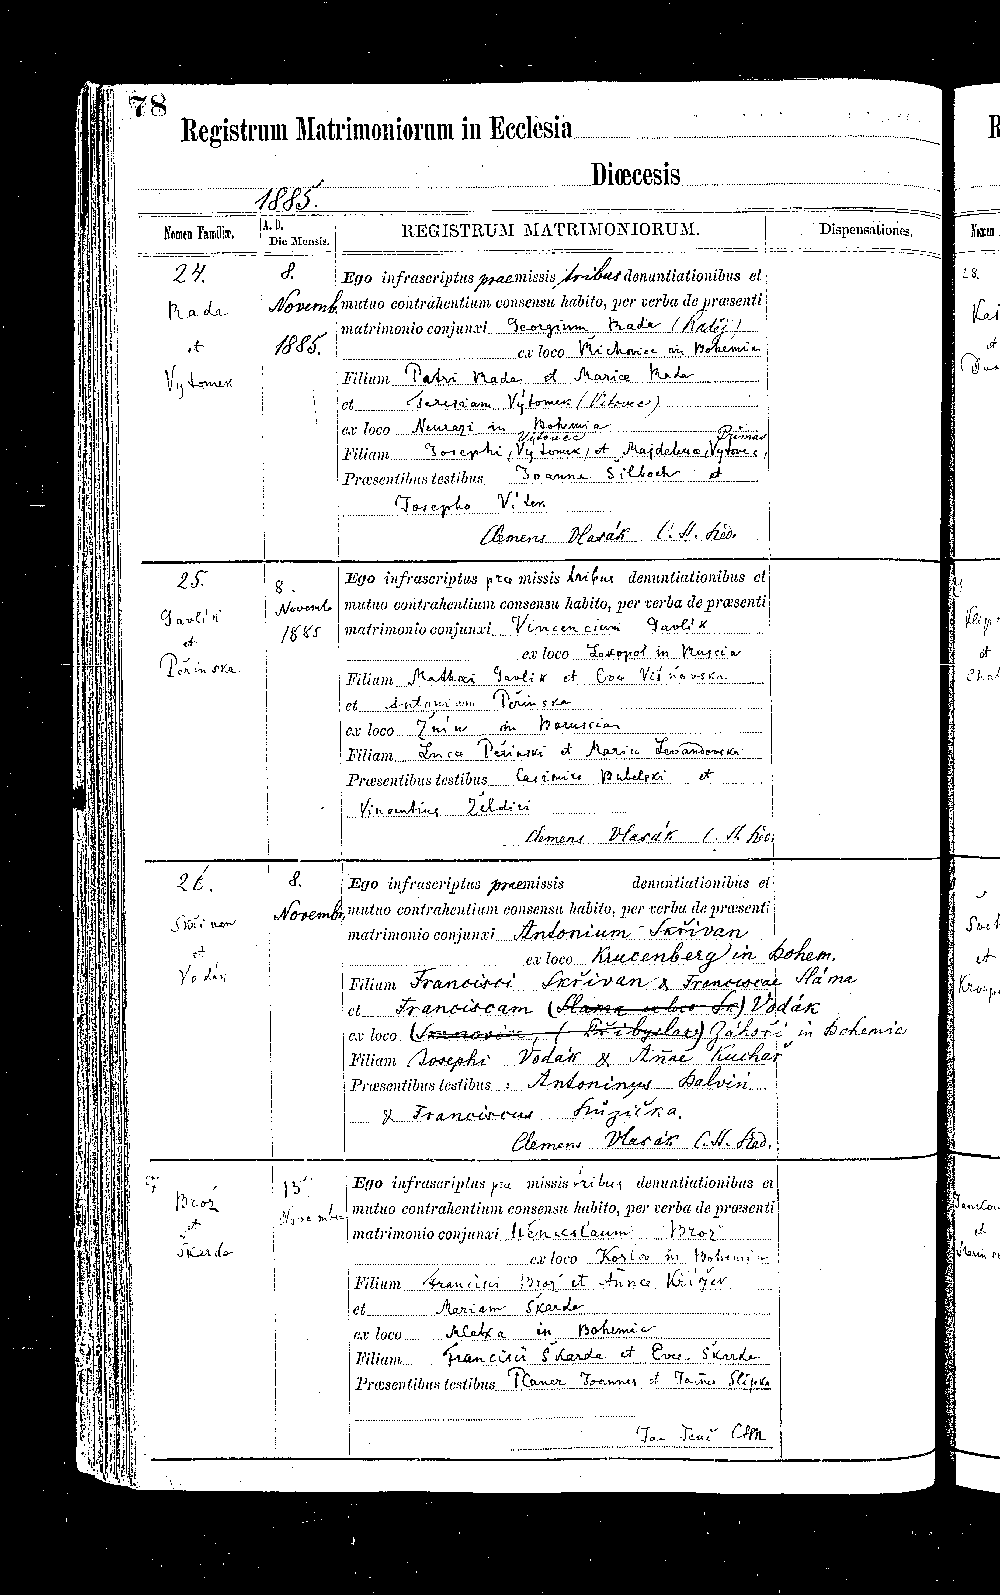 78
Registrum Matrimoniorum in Ecclesia
Diœcesis
1885.
Nomen Familiæ.
A. D.
Die Mensis.
REGISTRUM MATRIMONIORUM.
Dispensationes.
24.
Rada
et
Vytomek
8.
Novemb.
1885.
Ego infrascriptus praemissis tribus denuntiationibus et
mutuo contrahentium consensu habito, per verba de præsenti
matrimonio conjunxi Georgium Rada
ex loco Krichovice in Bohemia
Filium Patri Rada et Maria Rada
et Teresiam Vytomek (Vitovec)
ex loco Neurazi in Bohemia
Vytovec
Filiam Josephi, Vytomek, et Majdelena, Vytovec,
Præsentibus testibus Joanne Silboch et
Josepho Vitek
Clemens Vlasák C. M. Red.
25.
Gavlik
et
Peřinska
8.
Novemb.
1885
Ego infrascriptus præ missis tribus denuntiationibus et
mutuo contrahentium consensu habito, per verba de præsenti
matrimonio conjunxi Vincencium Gavlik
ex loco in Russia
Filium Mathæi Gavlik et Eva Višňovska
et Antoniam Peřinska
ex loco Žnin in Borussia
Filiam Luca Peřinski et Maria Levandovska
Præsentibus testibus Casimiro Bubelski et
Vincentius
Clemens Vlasák C. M. Red.
26.
Skřivan
et
Vodák
8.
Novemb.
Ego infrascriptus praemissis denuntiationibus et
mutuo contrahentium consensu habito, per verba de præsenti
matrimonio conjunxi Antonium Skřivan
ex loco Krucenberg in Bohem.
Filium Francisci Skřivan & Franciscae Sláma
et Franciscam (Slama) Vodák
ex loco (Přibyslav) Záhoří in Bohemia
Filiam Josephi Vodák & Añae Kuchař
Præsentibus testibus : Antoninus Balvin
& Franciscus Růžička.
Clemens Vlasák C. M. Red.
27
Brož
et
Škarda
15
November
Ego infrascriptus præ missis tribus denuntiationibus et
mutuo contrahentium consensu habito, per verba de præsenti
matrimonio conjunxi Wenceslaum Brož
ex loco in Bohemia
Filium Francisci Brož et Anna
et Mariam Škarda
ex loco in Bohemia
Filiam Francisci Škarda et Eva Škarda
Præsentibus testibus Joannes et Slipka